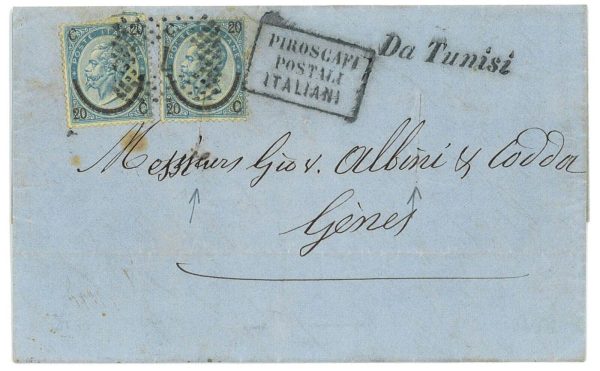 C 20
POSTE ITALIANE
20 C
C 20
20 C
PIROSCAFI
POSTALI
ITALIANI
Da Tunisi
Messieurs Gio v. Albini & Codda
Gênes